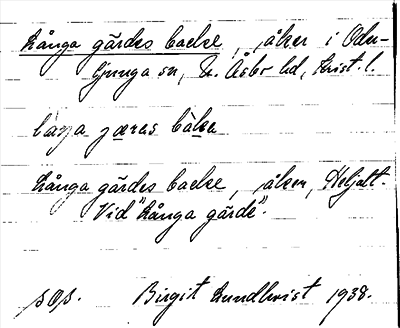 Långa gärdes backe, åker i Oder-
ljunga sn, N. Åsbo hd, Krist. l.
låŋa jæras bàkə
Långa gärdes backe, åker, Heljalt.
Vid "Långa gärde".
Birgit Lundkvist 1938.